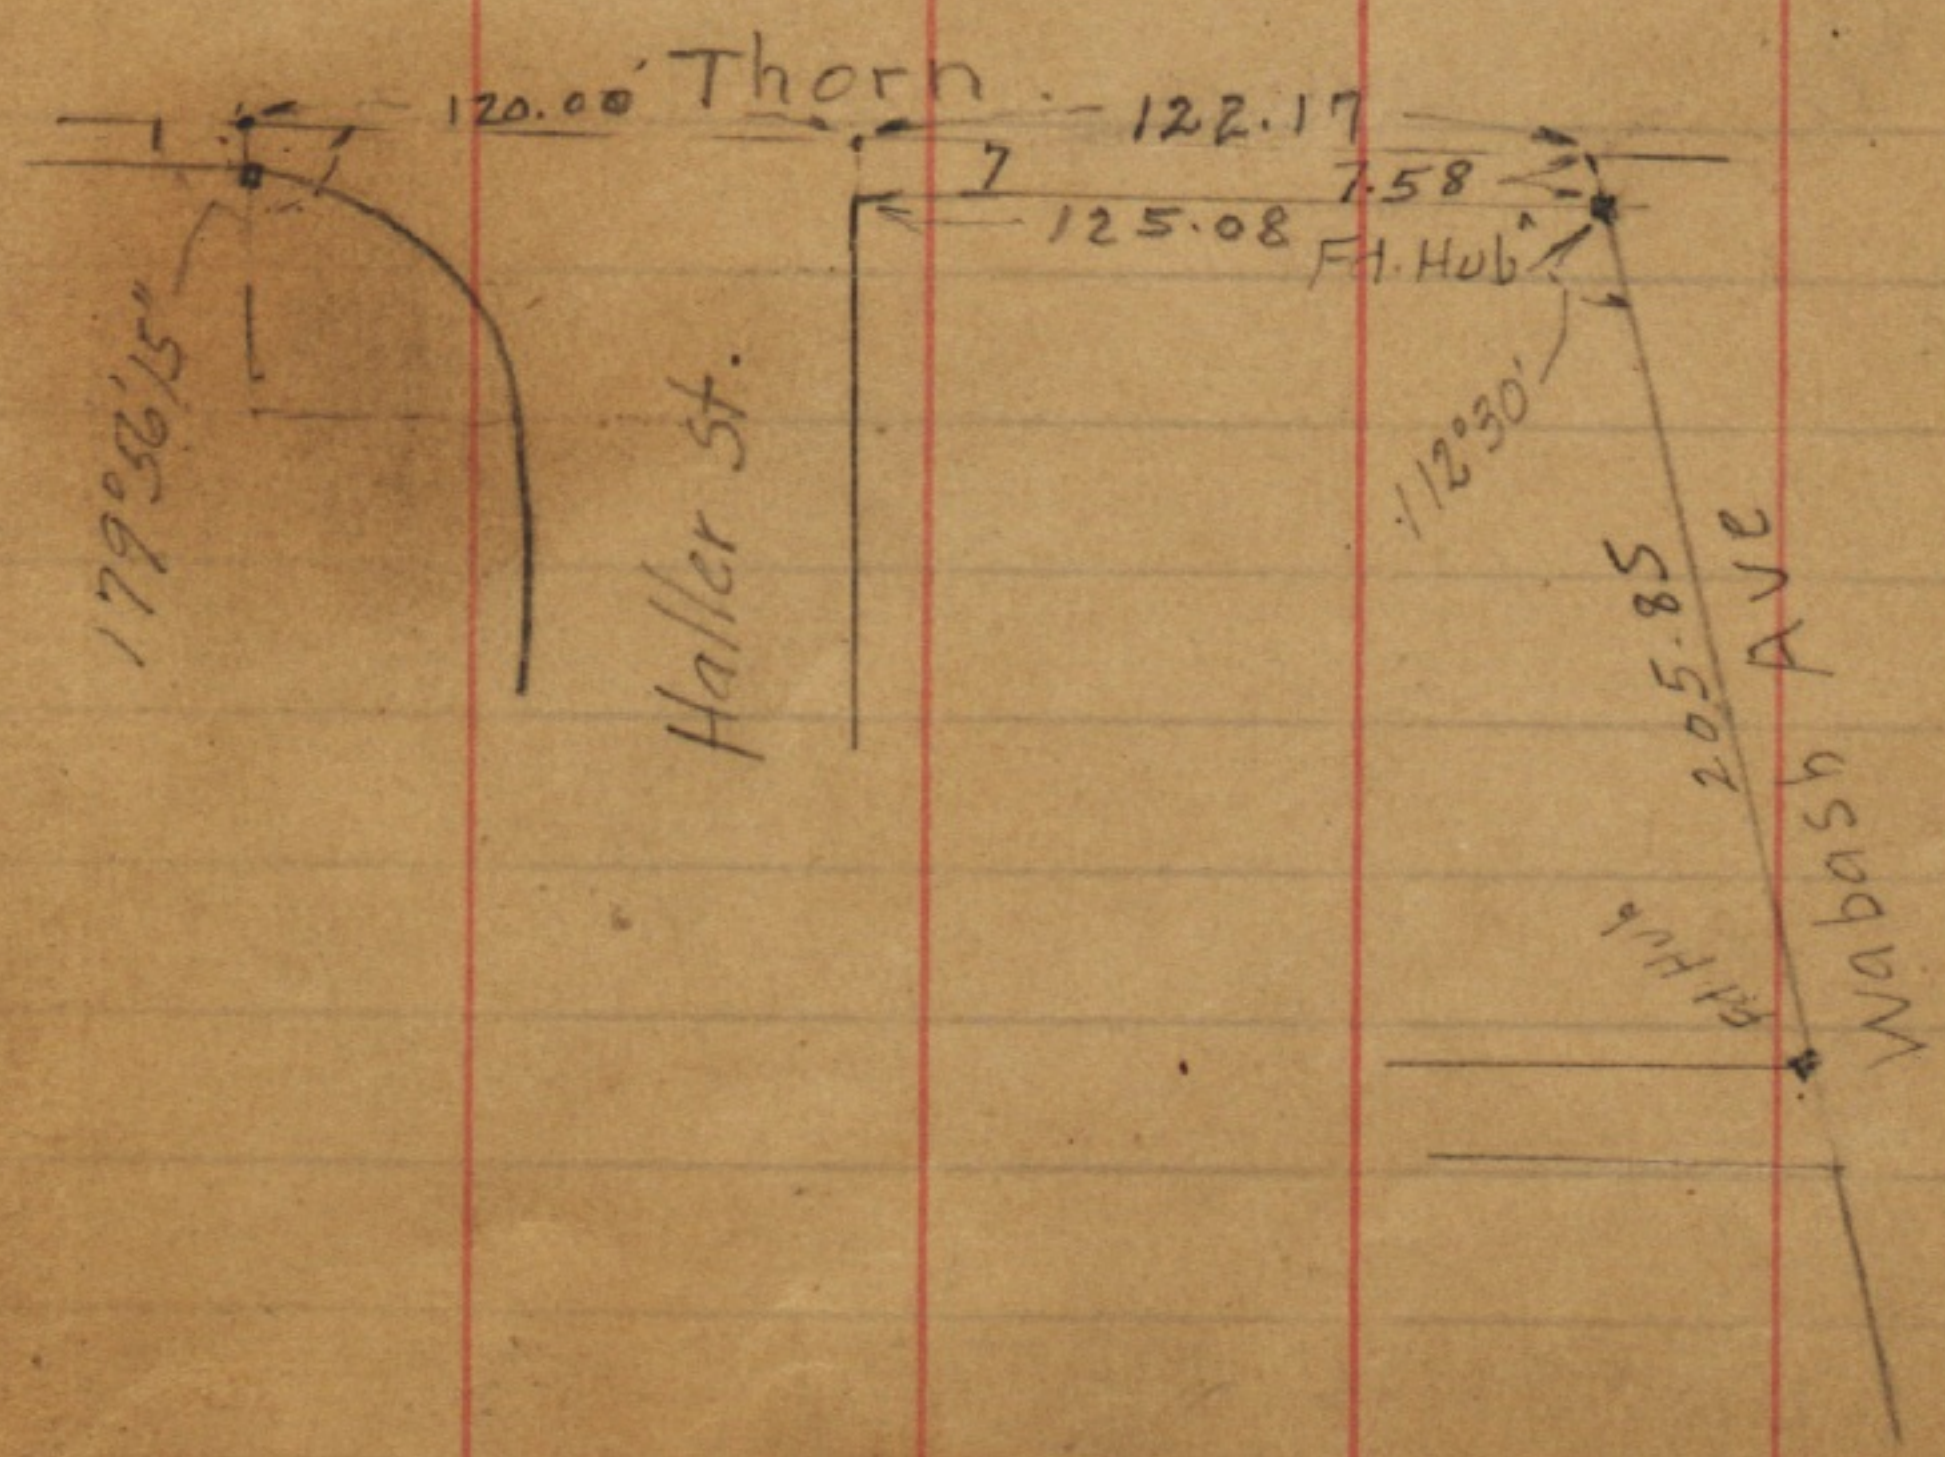 Thorn
120.00'
122.17
7
7.58
125.08
Fd. Hub
179°56'15"
Haller St.
112°30'
205.85
Wabash Ave
Fd Hub